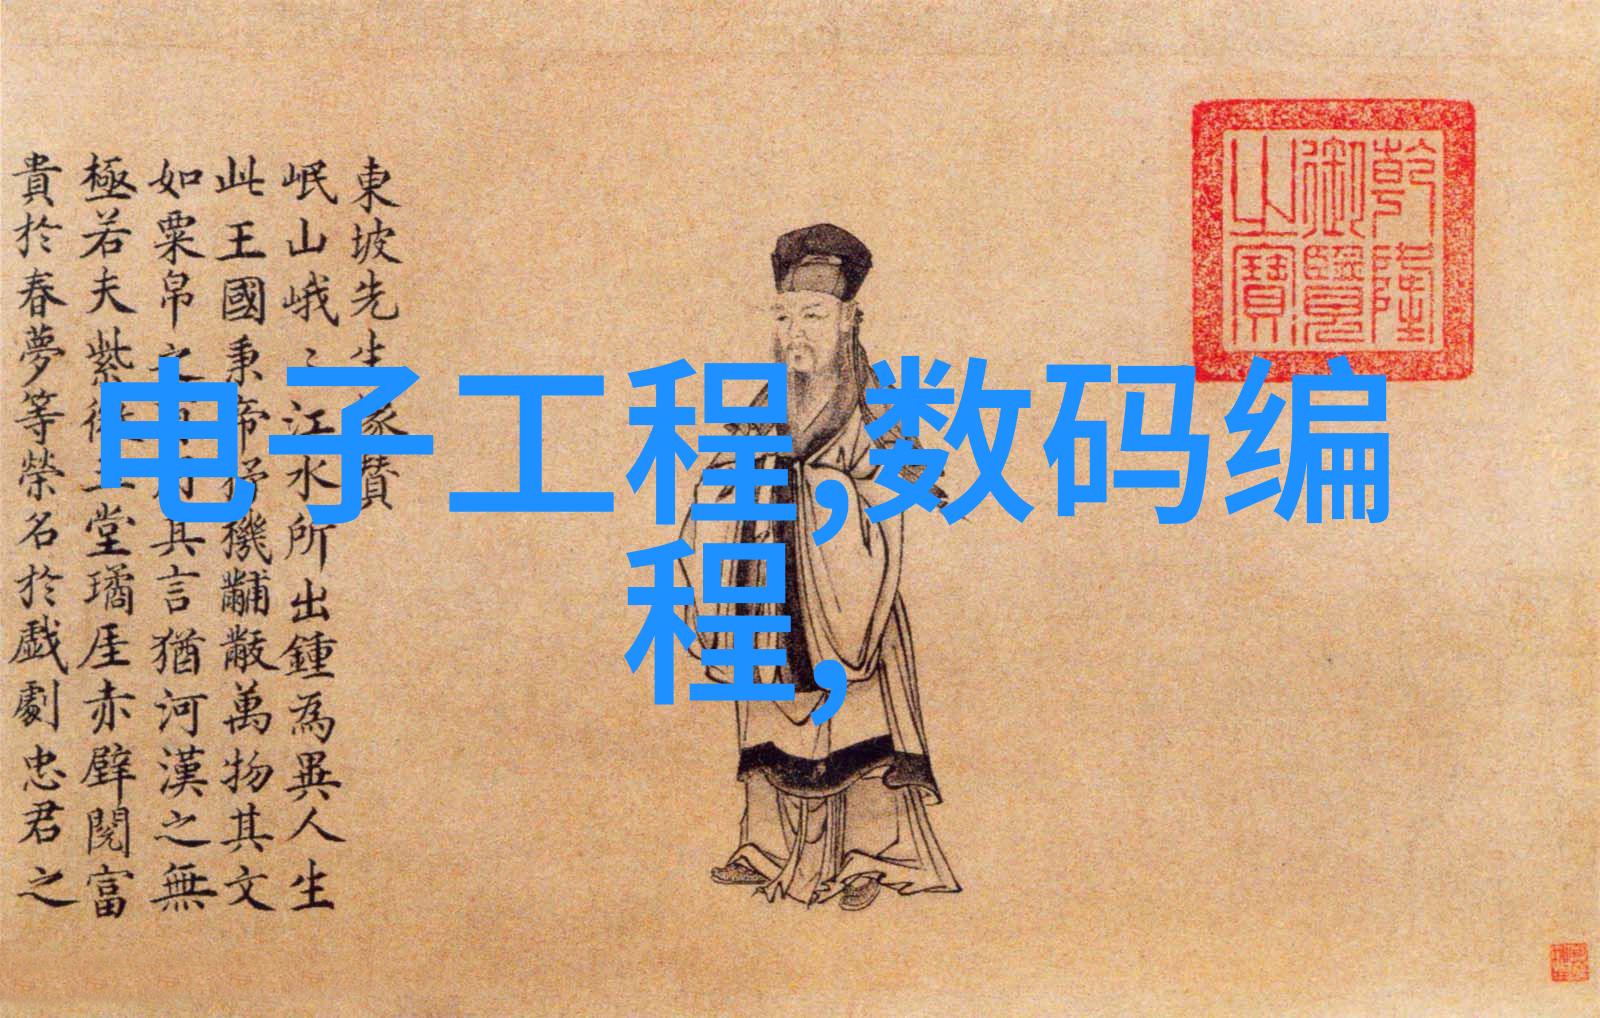 東坡先生像贊
岷山峨〻江水所出鍾為異人生
此王國秉帝杼機黼黻萬物其文
如粟帛之有用其言猶河漢之無
極若夫紫微玉堂璚厓赤壁閱富
貴於春夢等榮名於戲劇忠君之
电子工程,数码编
程,
乾隆
御覽
之寶